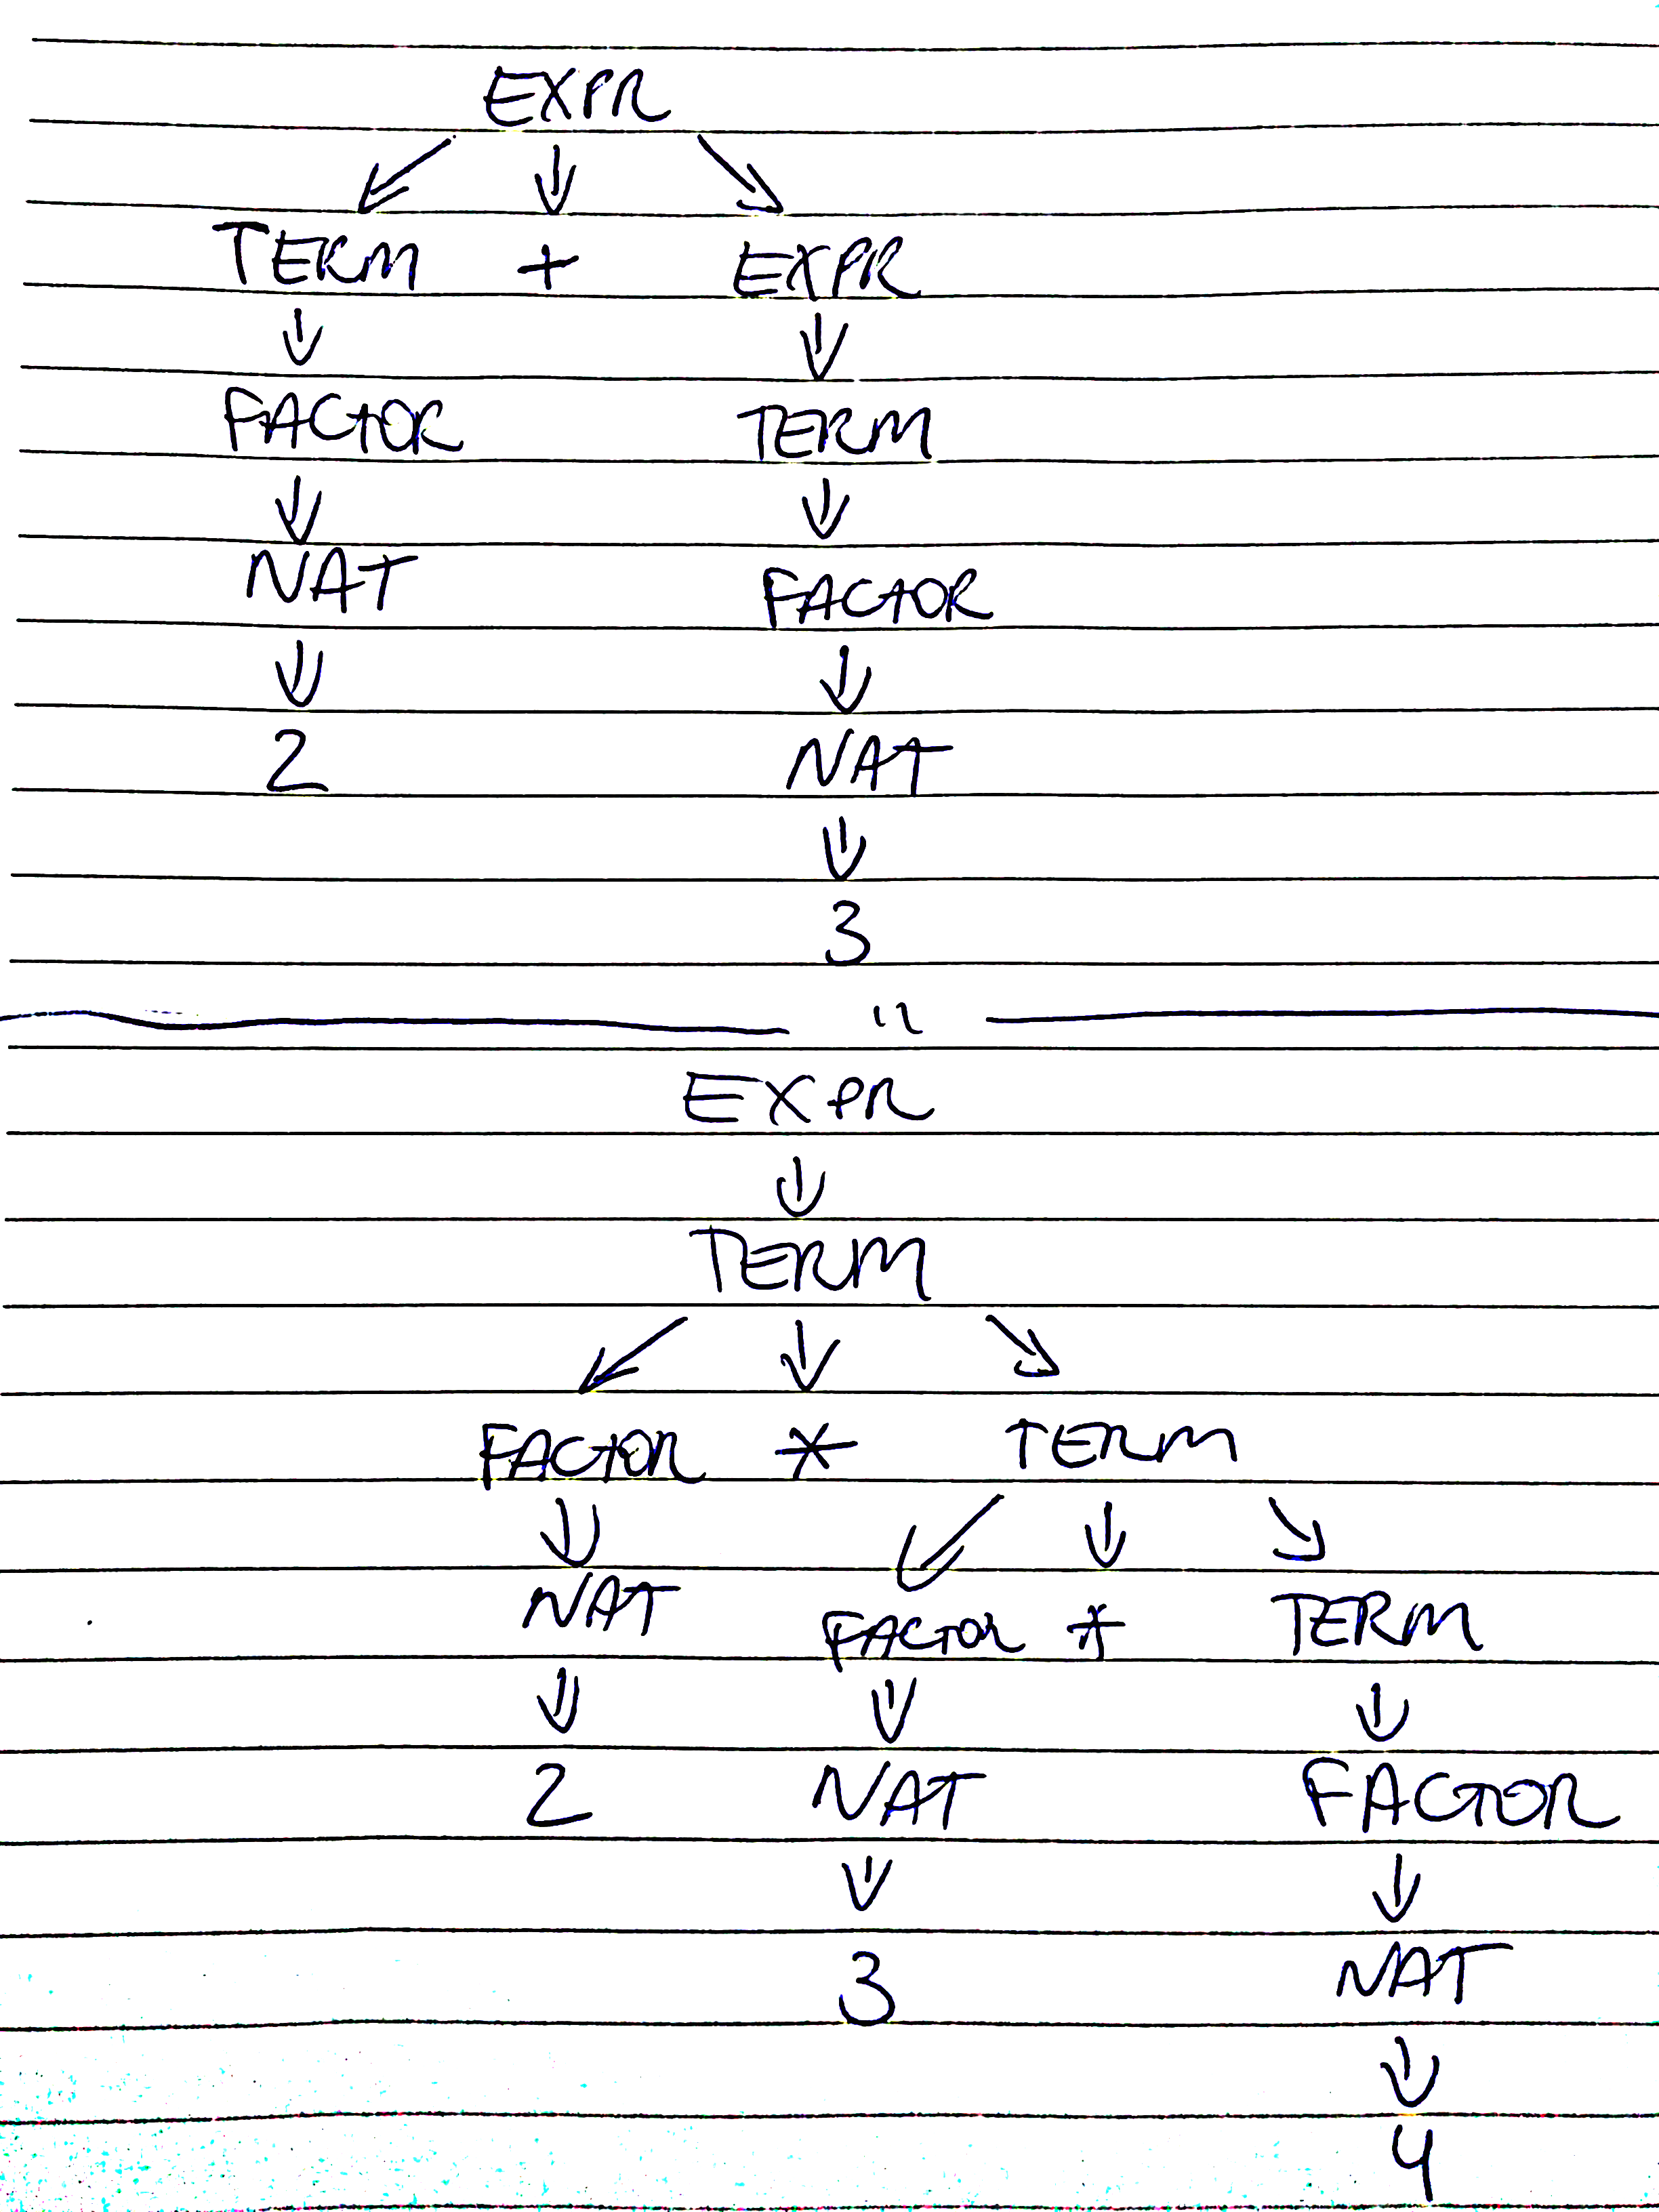 EXPR
TERM + EXPR
FACTOR TERM
NAT FACTOR
2 NAT
3
"
EXPR
TERM
FACTOR * TERM
NAT FACTOR * TERM
2 NAT FACTOR
3 NAT
4